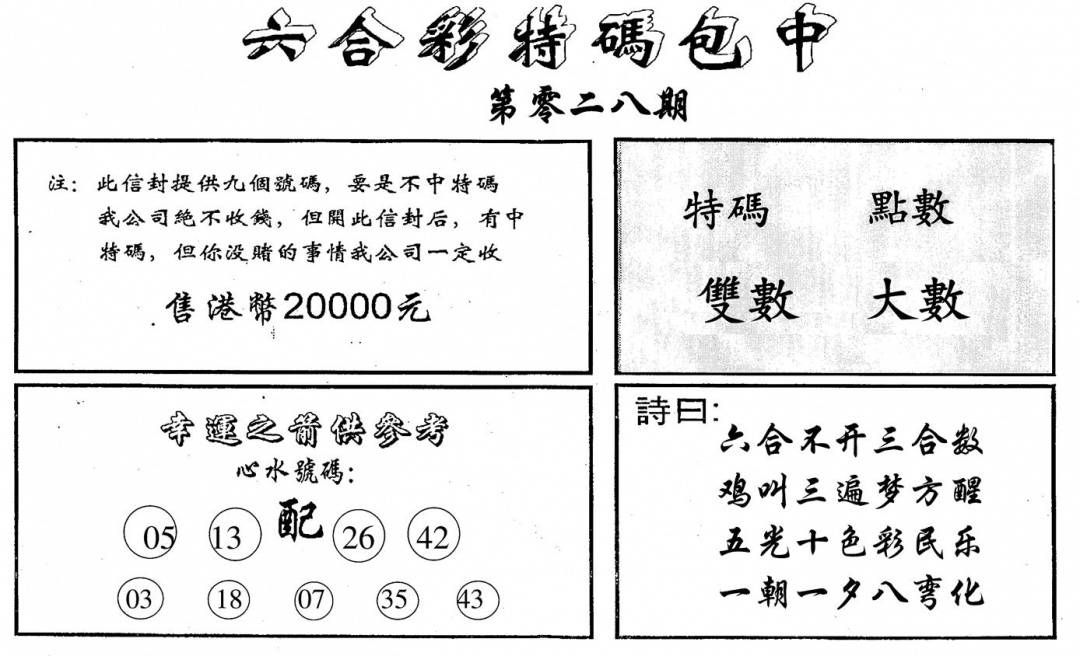 六合彩特碼包中
第零二八期
注：此信封提供九個號碼，要是不中特碼
我公司絕不收錢，但開此信封后，有中
特碼，但你没賭的事情我公司一定收
售港幣20000元
特碼 點數
雙數 大數
幸運之箭供參考
心水號碼：
05 13 配 26 42
03 18 07 35 43
詩曰：
六合不开三合数
鸡叫三遍梦方醒
五光十色彩民乐
一朝一夕八弯化